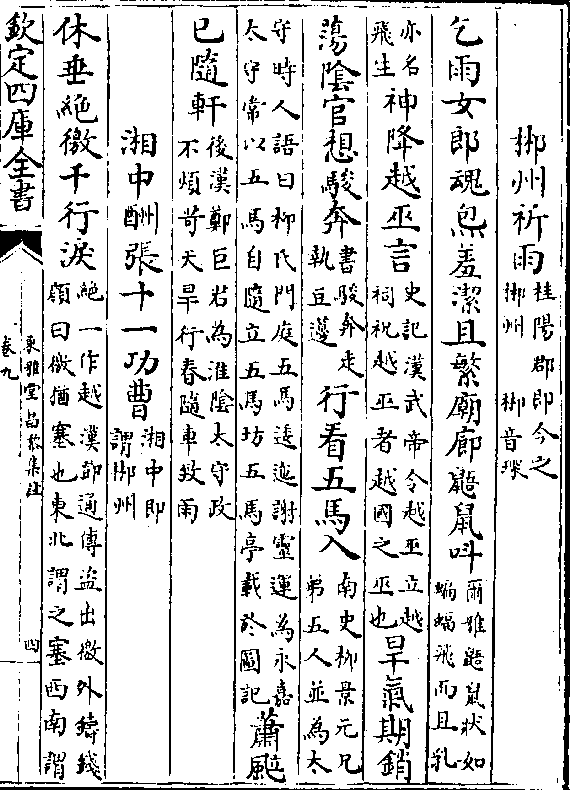 郴州祈雨桂陽郡即今之郴州　郴音琛
乞雨女郎魂炰羞潔且繁廟廊鼯鼠呌爾雅鼯鼠狀如蝙蝠飛而且乳
亦名飛生神降越巫言史記漢武帝令越巫立越祠祝越巫者越國之巫也旱氣期銷
蕩陰官想駿奔書駿奔走執豆籩行看五馬入南史柳景元兄弟五人並為太
守時人語曰柳氏門庭五馬逶迤謝靈運為永嘉太守常以五馬自隨立五馬坊五馬亭載於圖記蕭颼
已隨軒後漢鄭巨君為淮陰太守政不煩苛天旱行春隨車致雨
湘中酬張十一功曹湘中即謂郴州
休垂絶徼千行淚絶一作越漢鄧通傳盜出徼外鑄錢顔曰徼猶塞也東北謂之塞西南謂
欽定四庫全書
卷九
東雅堂昌黎集註
四